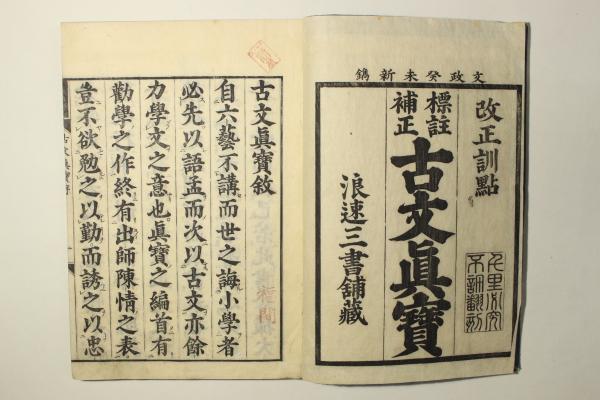 文政癸未新鐫
改正訓點
標註
補正
古文眞寶
浪速三書舗藏
古文眞寶敘
自六藝不講而世之誨小學者
必先以語孟而次以古文亦餘
力學文之意也眞寶之編首有
勸學之作終有出師陳情之表
豈不欲勉之以勤而誘之以忠
古文眞寶序